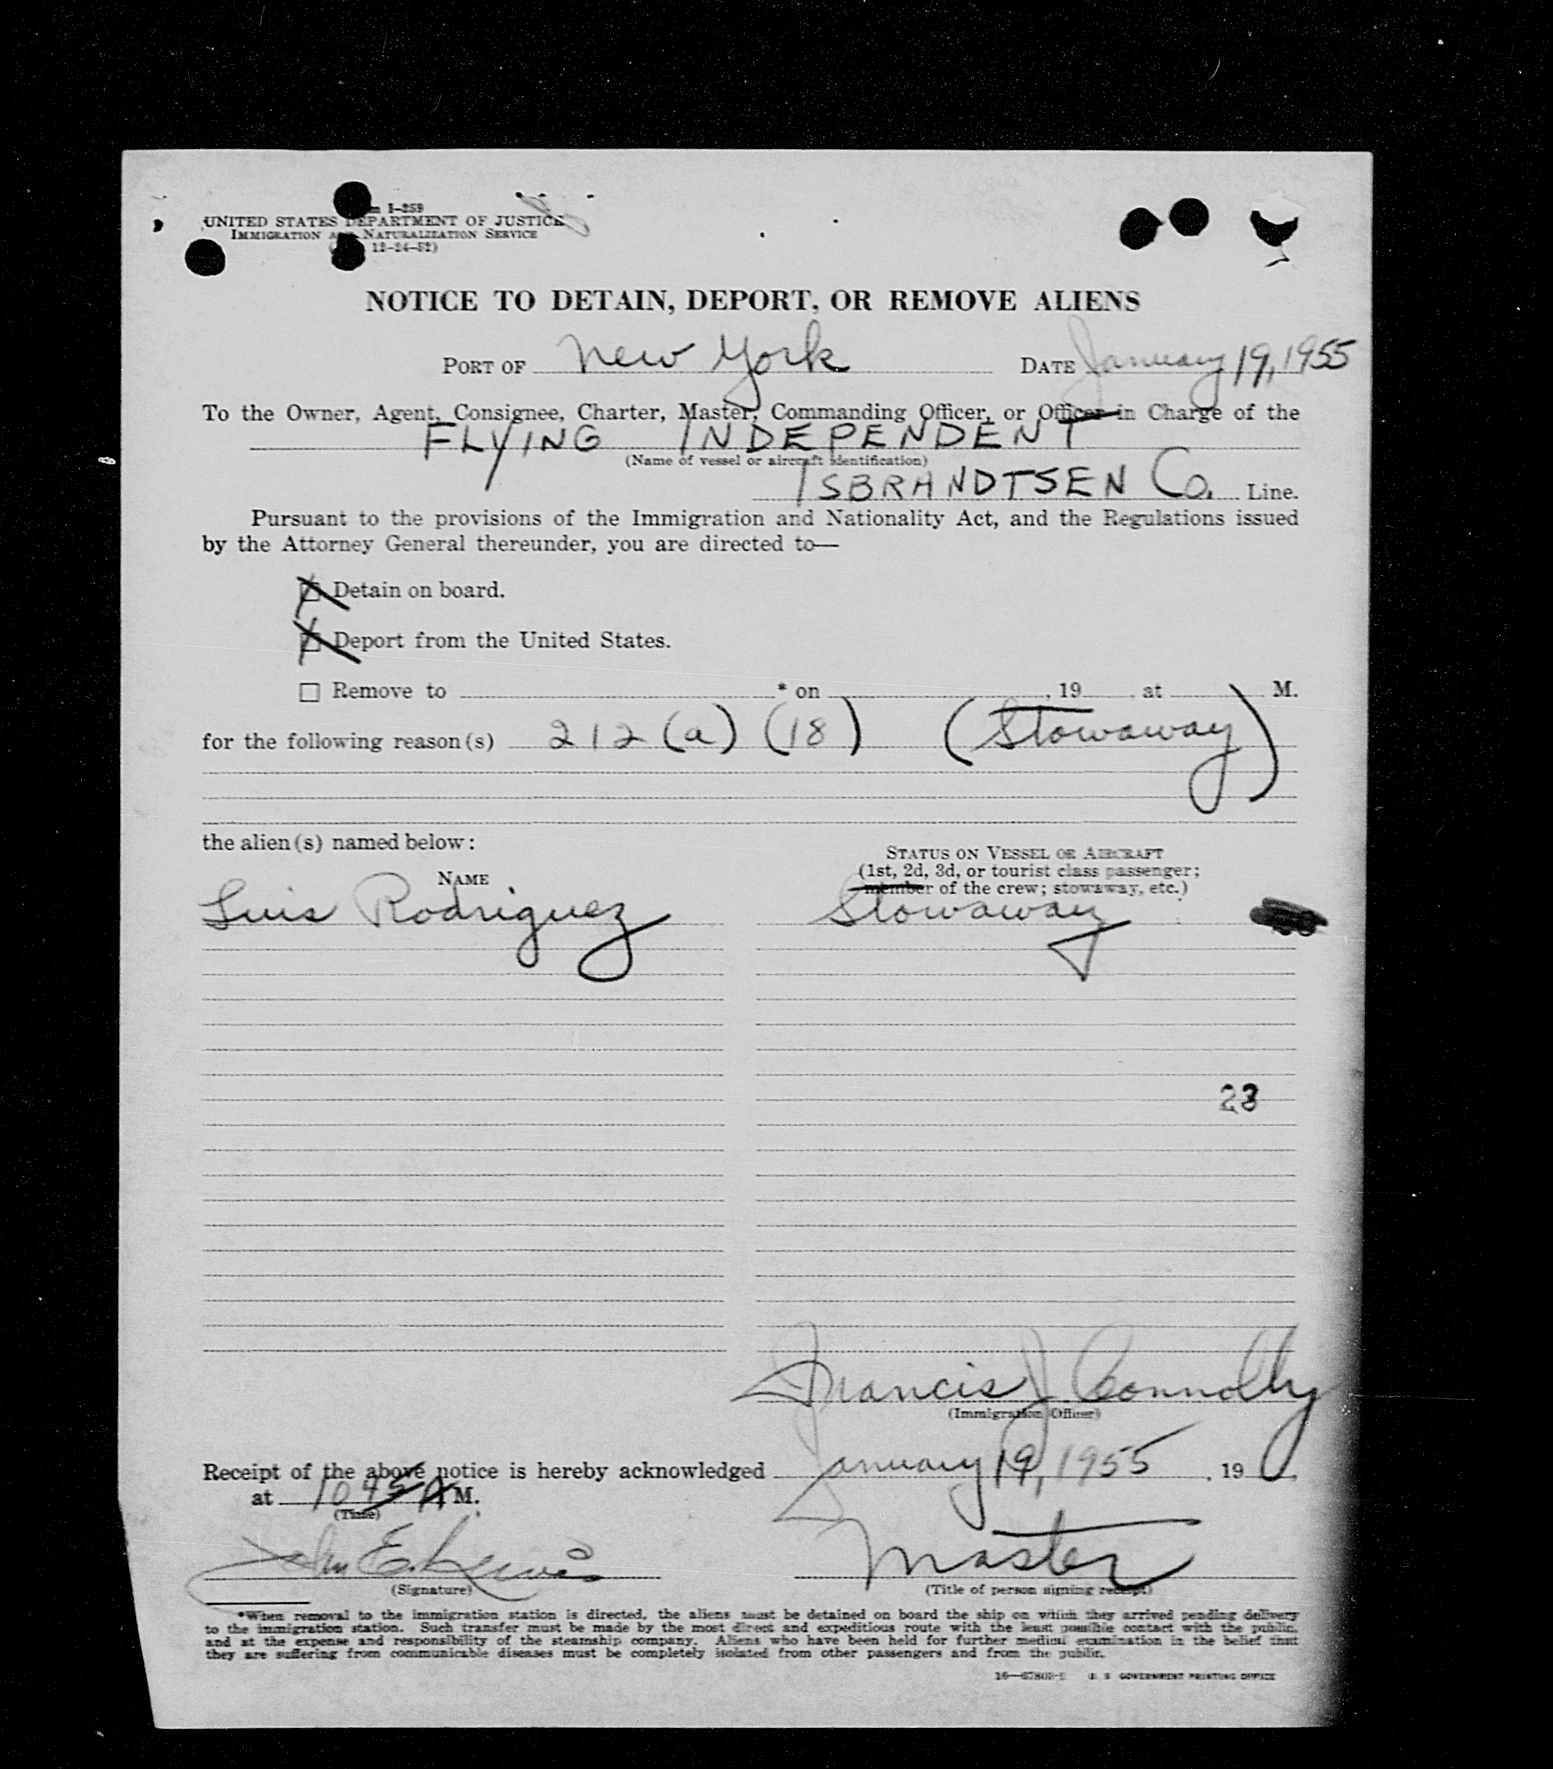 I-259
UNITED STATES DEPARTMENT OF JUSTICE
IMMIGRATION AND NATURALIZATION SERVICE
12-24-52)
NOTICE TO DETAIN, DEPORT, OR REMOVE ALIENS
PORT OF New York DATE January 19, 1955
To the Owner, Agent, Consignee, Charter, Master, Commanding Officer, or Officer in Charge of the
FLYING INDEPENDENT
(Name of vessel or aircraft identification)
ISBRANDTSEN Co. Line.
Pursuant to the provisions of the Immigration and Nationality Act, and the Regulations issued
by the Attorney General thereunder, you are directed to—
☒ Detain on board.
☒ Deport from the United States.
☐ Remove to * on , 19 at M.
for the following reason(s) 212 (a) (18) (Stowaway)
the alien(s) named below:
STATUS ON VESSEL OR AIRCRAFT
(1st, 2d, 3d, or tourist class passenger;
NAME
member of the crew; stowaway, etc.)
Luis Rodriguez Stowaway
23
Francis J Connolly
(Immigration Officer)
Receipt of the above notice is hereby acknowledged January 19, 1955, 19
at 1045 A M.
(Time)
John E. Lewis Master
(Signature) (Title of person signing receipt)
*When removal to the immigration station is directed, the aliens must be detained on board the ship on which they arrived pending delivery
to the immigration station. Such transfer must be made by the most direct and expeditious route with the least possible contact with the public,
and at the expense and responsibility of the steamship company. Aliens who have been held for further medical examination in the belief that
they are suffering from communicable diseases must be completely isolated from other passengers and from the public.
U. S. GOVERNMENT PRINTING OFFICE